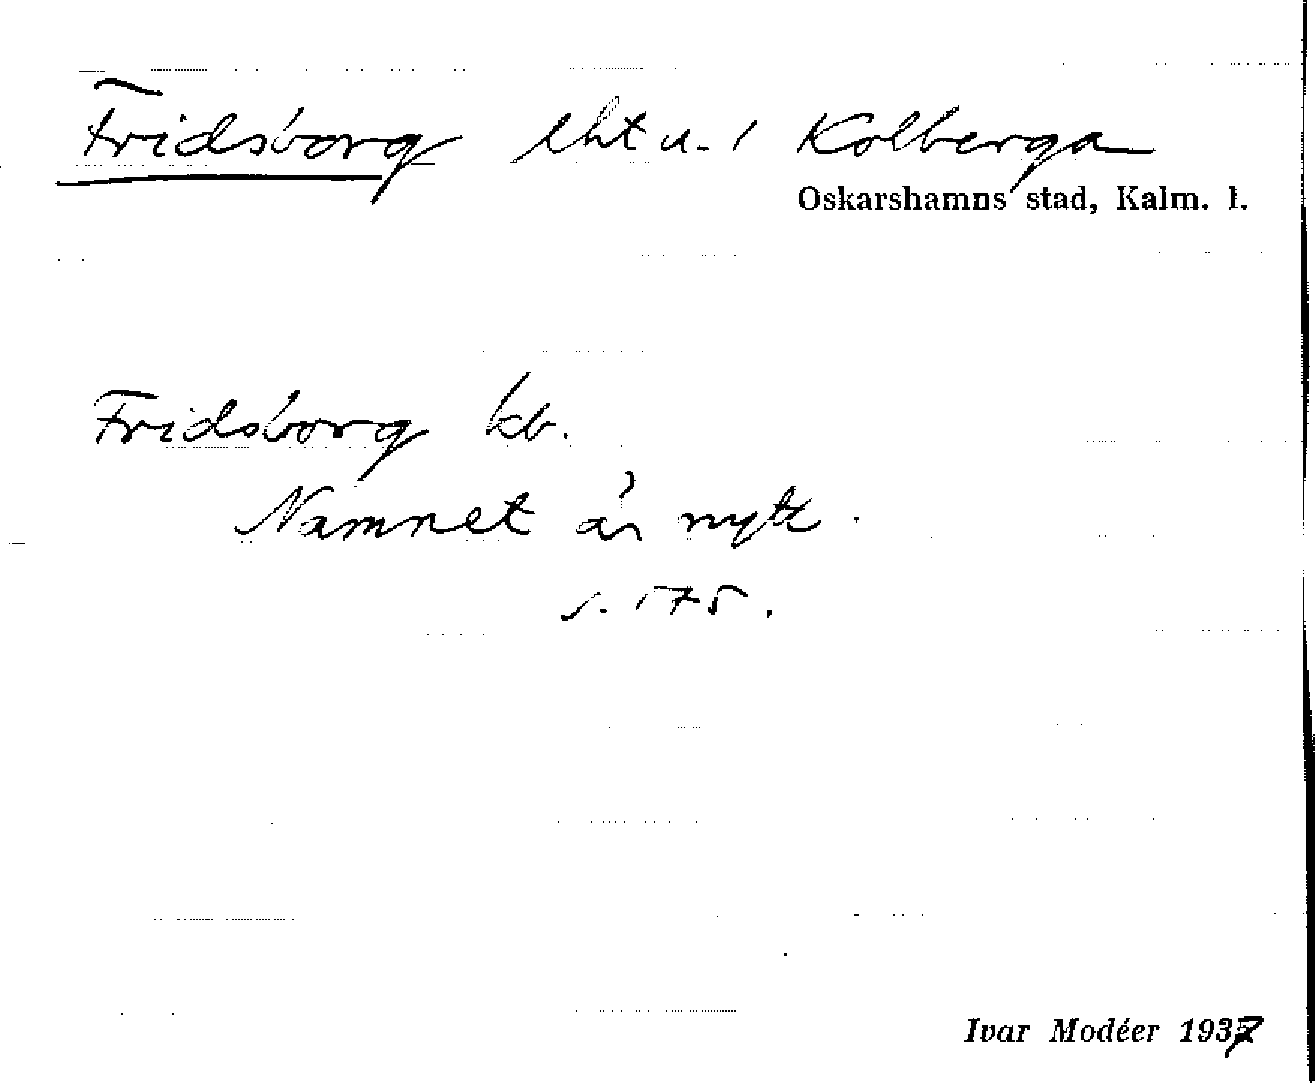 Fridsborg lht u. 1 Kolberga
Oskarshamns stad, Kalm. l.
Fridsborg kb.
Namnet är nytt.
s. 175.
Ivar Modéer 1937